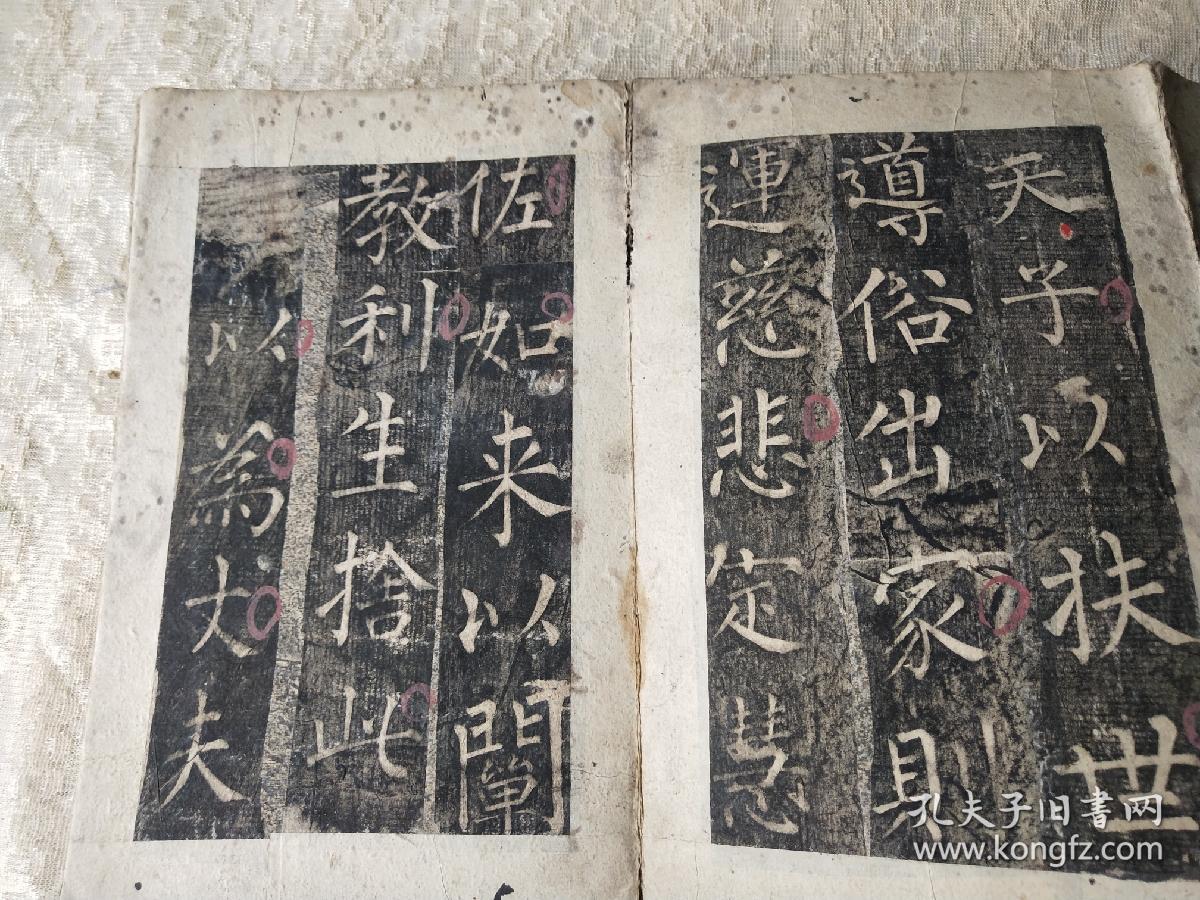 天子以扶世
導俗出家則
運慈悲定慧
佐如来以闡
教利生捨此
以為丈夫
孔夫子旧书网
www.kongfz.com